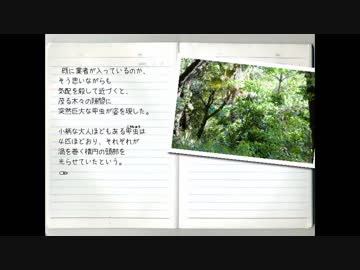 既に業者が入っているのか、
そう思いながらも
気配を殺して近づくと、
茂る木々の隙間に
突然巨大な甲虫が姿を現した。
小柄な大人ほどもある甲虫は
4匹ほどおり、それぞれが
渦を巻く楕円の頭部を
光らせていたという。